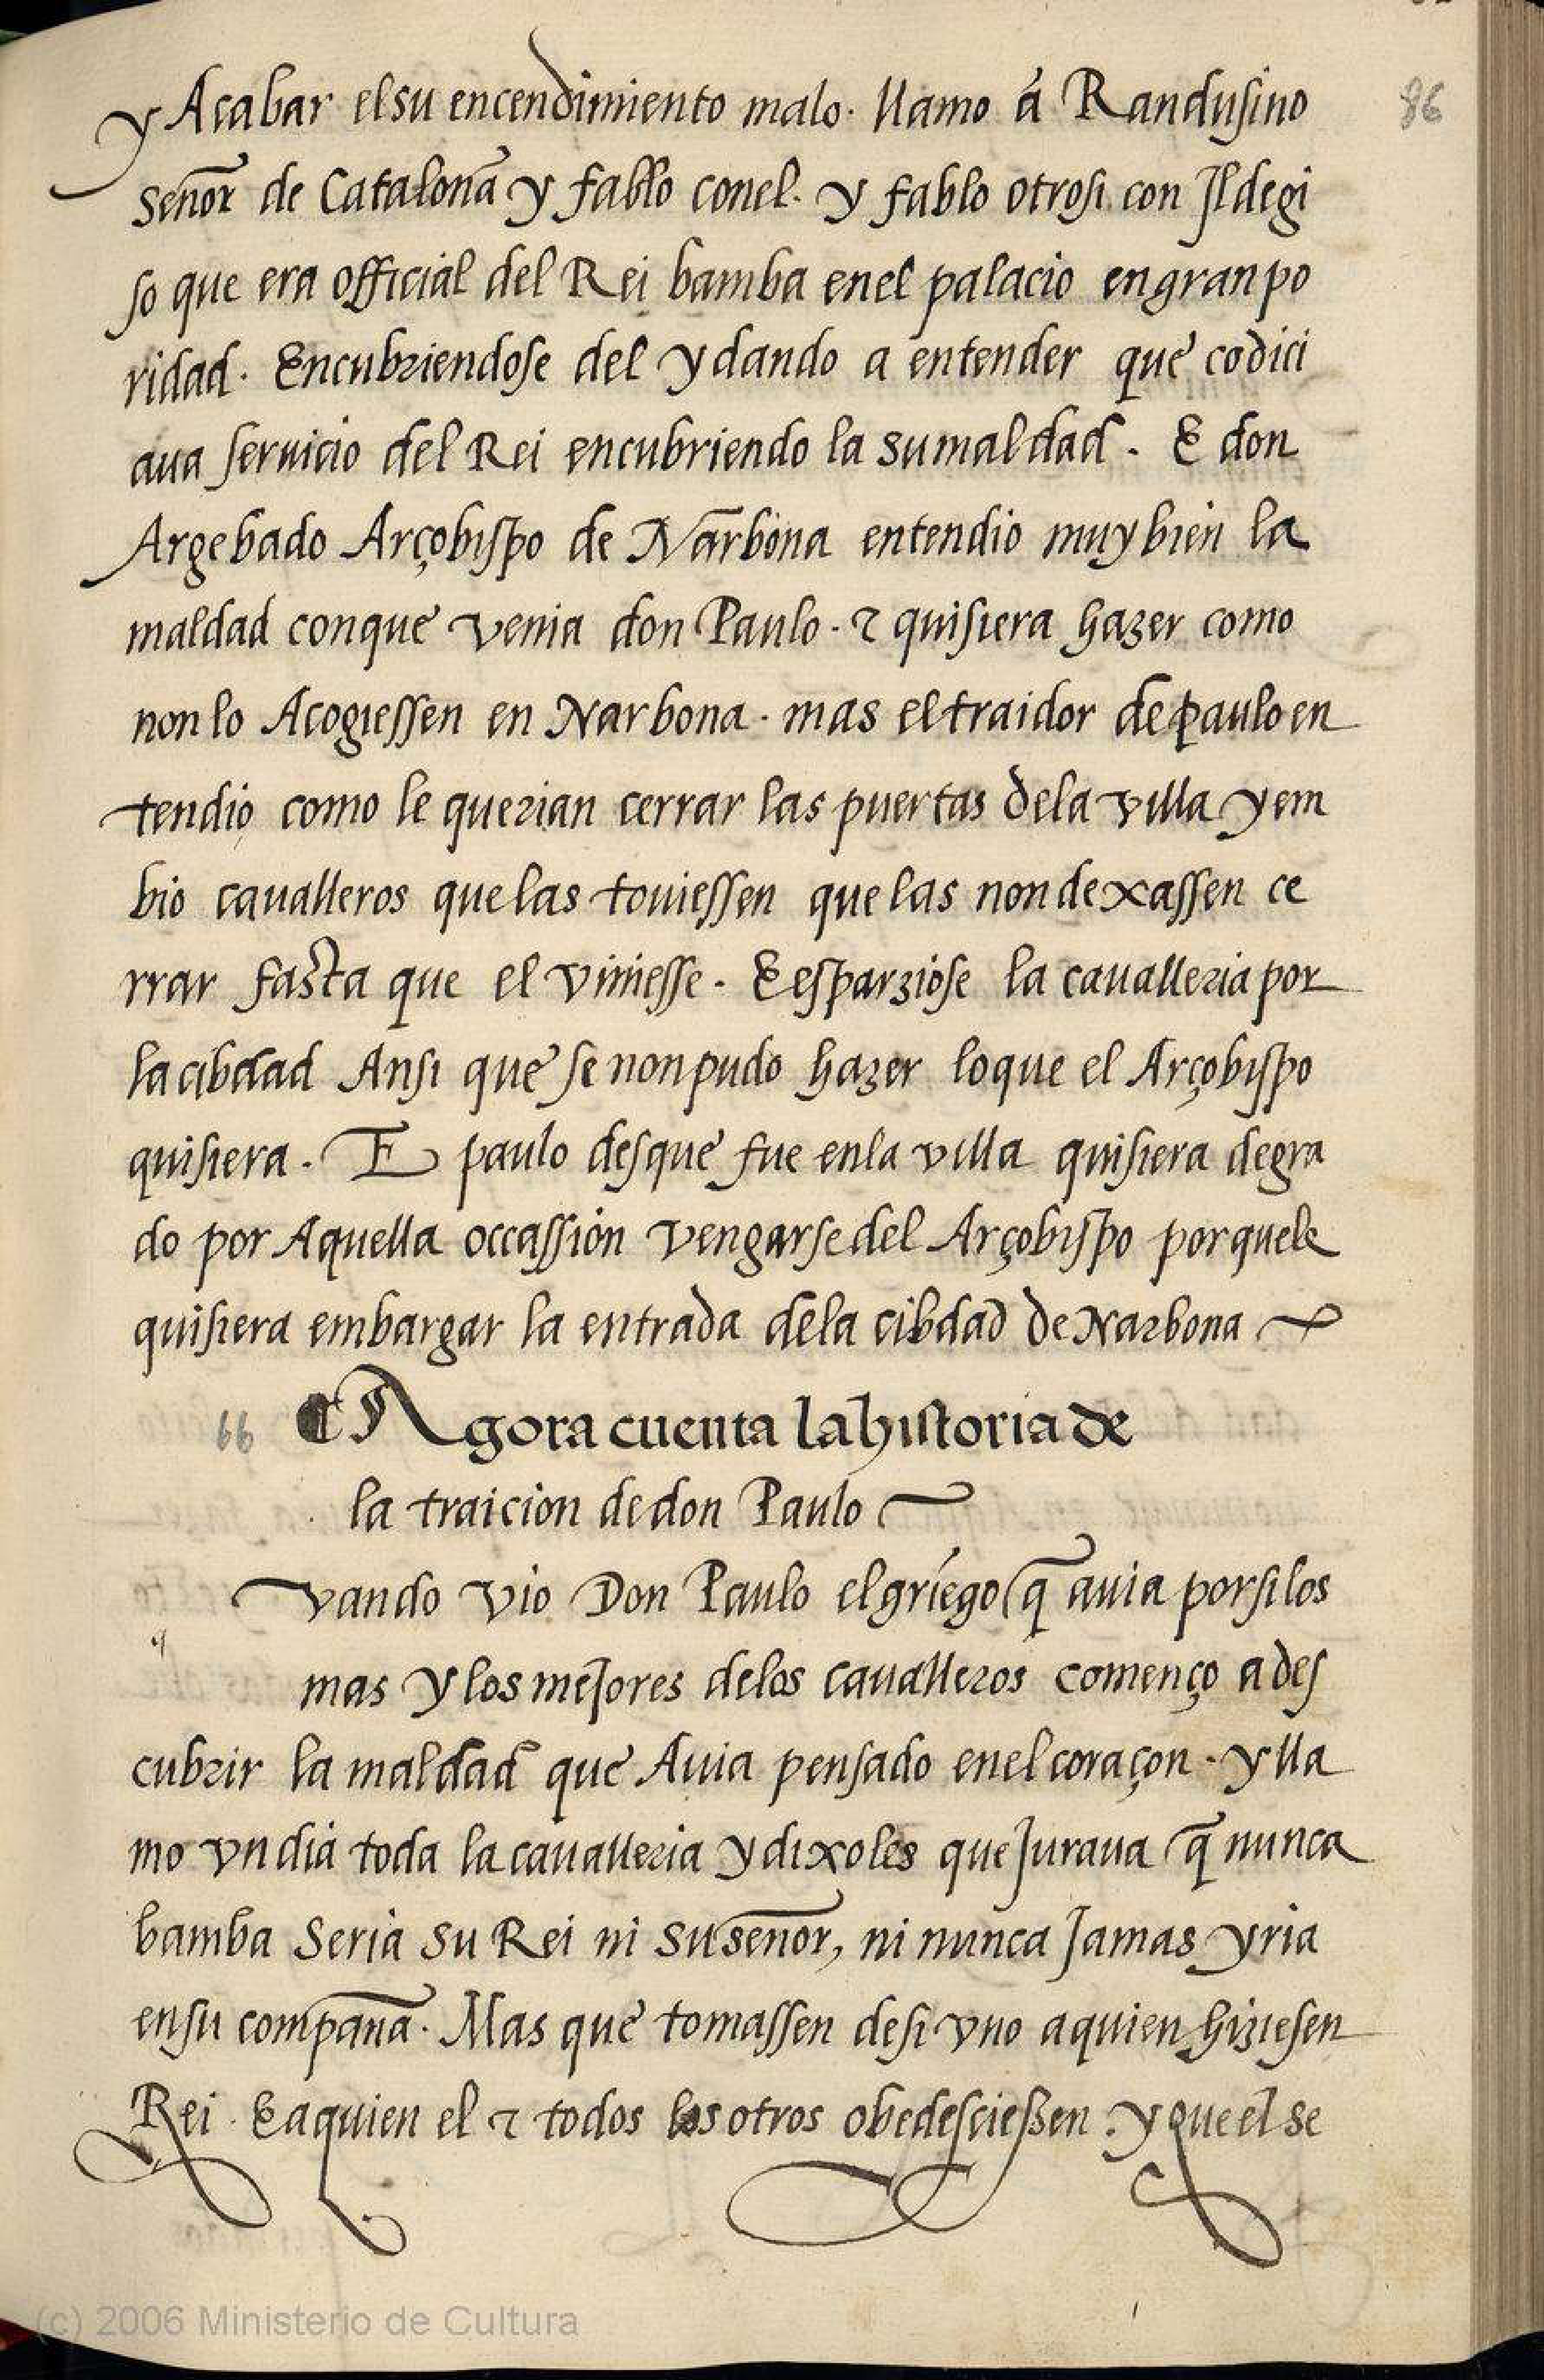 86
y Acabar elsu encendimiento malo. llamo á Randusino
señor de Cataloña y fablo conel. y fablo otrosi con Ildegi
so que era official del Rei bamba enel palacio engranpo
ridad. Encubriendose del y dando a entender que codici
aua seruicio del Rei encubriendo la sumaldad. E don
Argebado Arçobispo de Narbona entendio muybien la
maldad conque venia don Paulo. ⁊ quisiera hazer como
nonlo Acogiessen en Narbona. mas eltraidor depauloen
tendio como le querian cerrar las puertas dela villa yem
bio caualleros quelas touiessen quelas nondexassen ce
rrar fasta que el viniesse. Eesparziose la caualleria por
lacibdad Ansi que se nonpudo hazer loque el Arçobispo
quisiera. E paulo desque fue enla villa quisiera degra
do por Aquella occassion vengarsedel Arçobispo porquele
quisiera embargar la entrada dela cibdad de Narbona
66 Agora cuenta lahistoria de
la traicion dedon Paulo
q
vando vio Don Paulo elgriego q̃ auia porsilos
mas ylosmejores delos caualleros començo ades
cubrir la maldad que Auia pensado enelcoraçon. ylla
mo vndia toda lacaualleria ydixoles quejuraua q̃ nunca
bamba Seria su Rei ni suseñor, ni nunca jamas yria
ensu compaña. Mas que tomassen desi vno aquien hiziesen
Rei. Eaquien el ⁊ todos los otros obedescießen. yqueel se
(c) 2006 Ministerio de Cultura